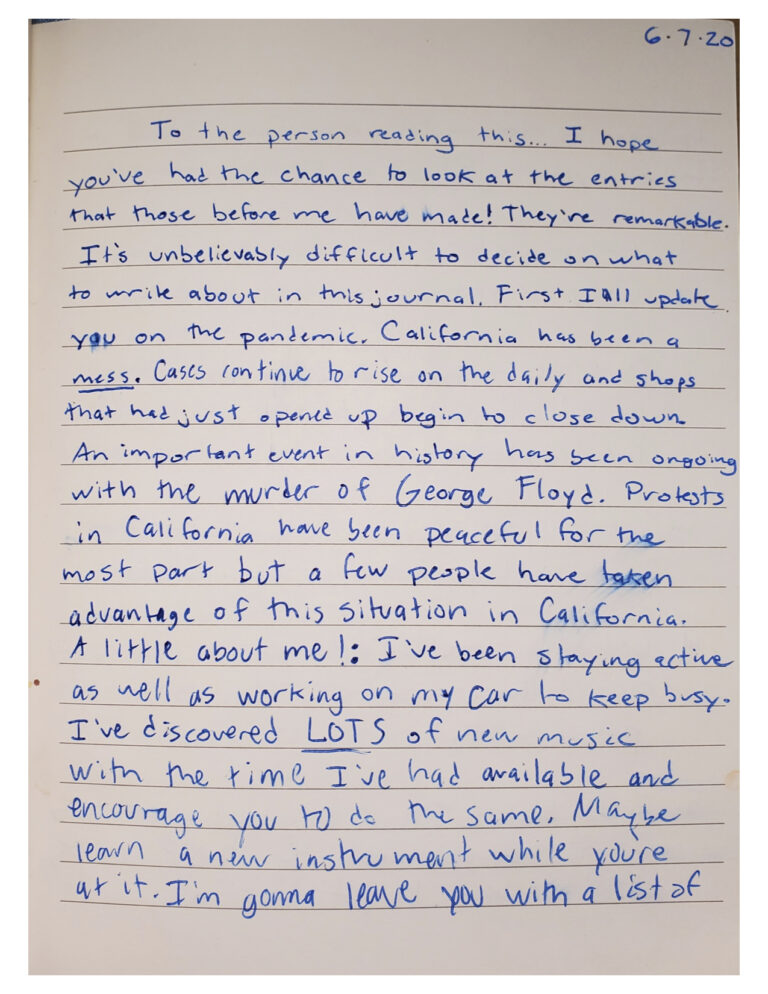 6.7.20
To the person reading this... I hope
you've had the chance to look at the entries
that those before me have made! They're remarkable.
It's unbelievably difficult to decide on what
to write about in this journal. First I'll update
you on the pandemic. California has been a
mess. Cases continue to rise on the daily and shops
that had just opened up begin to close down.
An important event in history has been ongoing
with the murder of George Floyd. Protests
in California have been peaceful for the
most part but a few people have taken
advantage of this situation in California.
A little about me!: I've been staying active
as well as working on my car to keep busy.
I've discovered LOTS of new music
with the time I've had available and
encourage you to do the same. Maybe
learn a new instrument while youre
at it. I'm gonna leave you with a list of